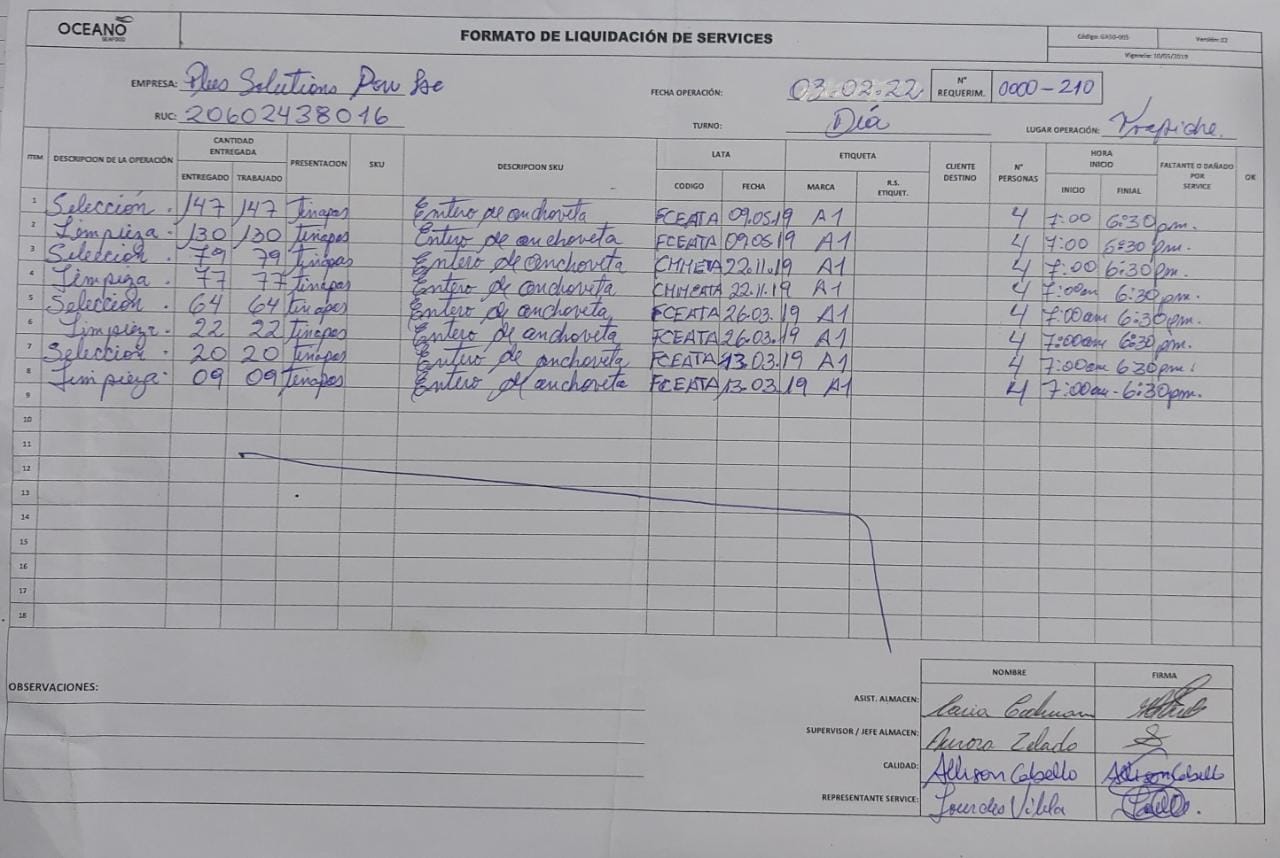 OCEANO
SEAFOOD
FORMATO DE LIQUIDACIÓN DE SERVICES
Código: GASO-005 Versión: 02
Vigencia: 10/05/2019
EMPRESA: Plus Solutions Peru Sac
FECHA OPERACIÓN: 03.02.22 N° REQUERIM. 0000-210
RUC: 20602438016
TURNO: Día LUGAR OPERACIÓN: Trapiche.
ITEM DESCRIPCION DE LA OPERACIÓN CANTIDAD ENTREGADA PRESENTACION SKU DESCRIPCION SKU LATA ETIQUETA CLIENTE DESTINO N° PERSONAS HORA INICIO FALTANTE O DAÑADO POR SERVICE OK
ENTREGADO TRABAJADO CODIGO FECHA MARCA R.S. ETIQUET. INICIO FINIAL
1 Selección. 147 147 tinapas Entero de anchoveta FCEATA 09.05.19 A1 4 7:00 6:30pm.
2 Limpieza. 130 130 tinapas Entero de anchoveta FCEATA 09.05.19 A1 4 7:00 6:30 pm.
3 Selección 79 79 tinapas Entero de anchoveta 22.11.19 A1 4 7:00 6:30pm.
4 Limpiza. 77 77 tinapas Entero de anchoveta 22.11.19 A1 4 7:00am 6:30pm.
5 Selección 64 64 tinapas Entero de anchoveta FCEATA 26.03.19 A1 4 7:00am 6:30pm.
6 Limpieza. 22 22 tinapas Entero de anchoveta FCEATA 26.03.19 A1 4 7:00am 6:30pm.
7 Selección 20 20 tinapas Entero de anchoveta FCEATA 13.03.19 A1 4 7:00am 6 30pm.
8 Limpieza. 09 09 tinapas Entero de anchoveta FCEATA 13.03.19 A1 4 7:00am - 6:30pm.
9
10
11
12
13
14
15
16
17
18
NOMBRE FIRMA
OBSERVACIONES:
ASIST. ALMACEN:
SUPERVISOR / JEFE ALMACEN: Aurora Zelado
CALIDAD: Allison Cabello Allison Cabello
REPRESENTANTE SERVICE: Lourdes Vilela